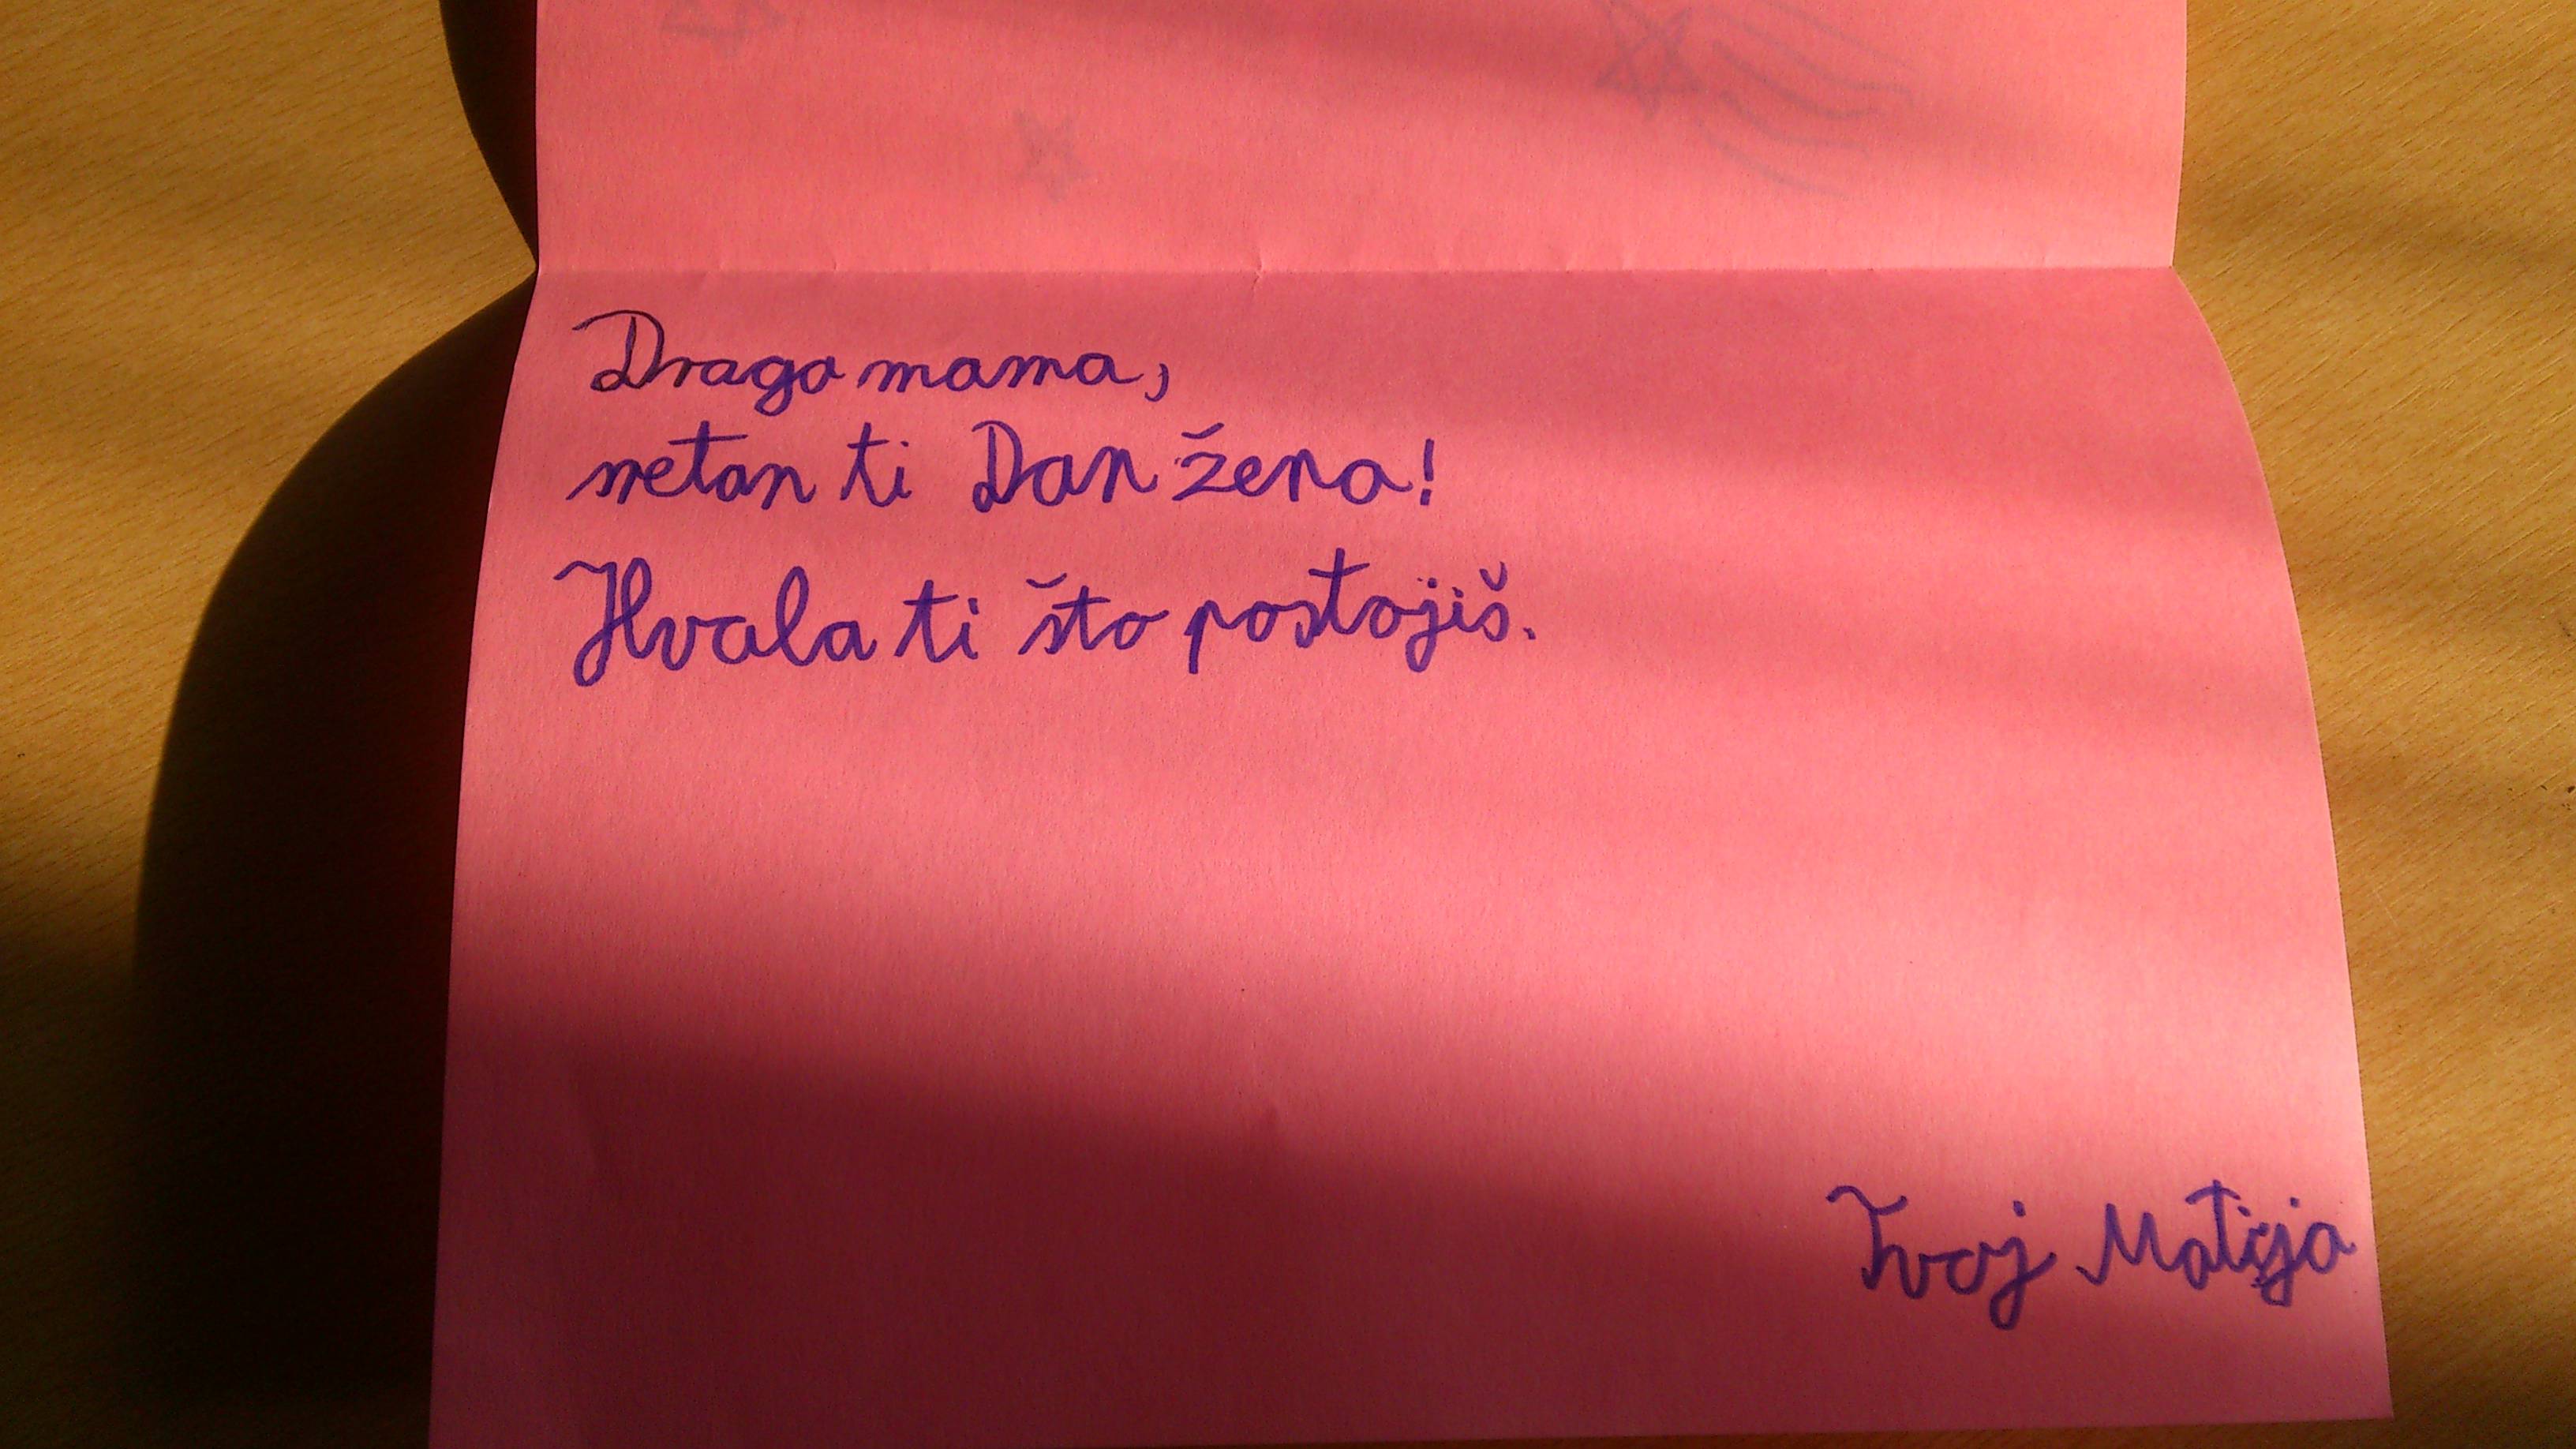 Draga mama,
sretan ti Dan žena!
Hvala ti što postojiš.
Tvoj Matija